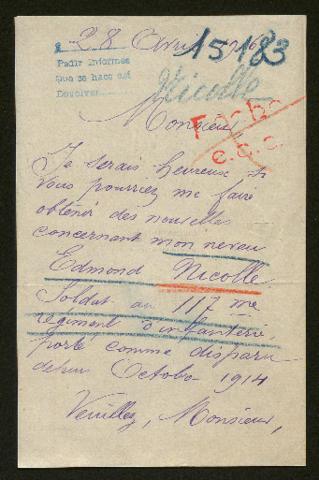 28 Avril
15183
Pedir informes
Que se hace así
Devolver
Nicolle
Monsieur
Je serais heureuse si
vous pourriez me faire
obtenir des nouvelles
concernant mon neveu
Edmond Nicolle
Soldat au 117 me
regiment d'infanterie,
porté comme disparu
depuis Octobre 1914
Veuillez, Monsieur,